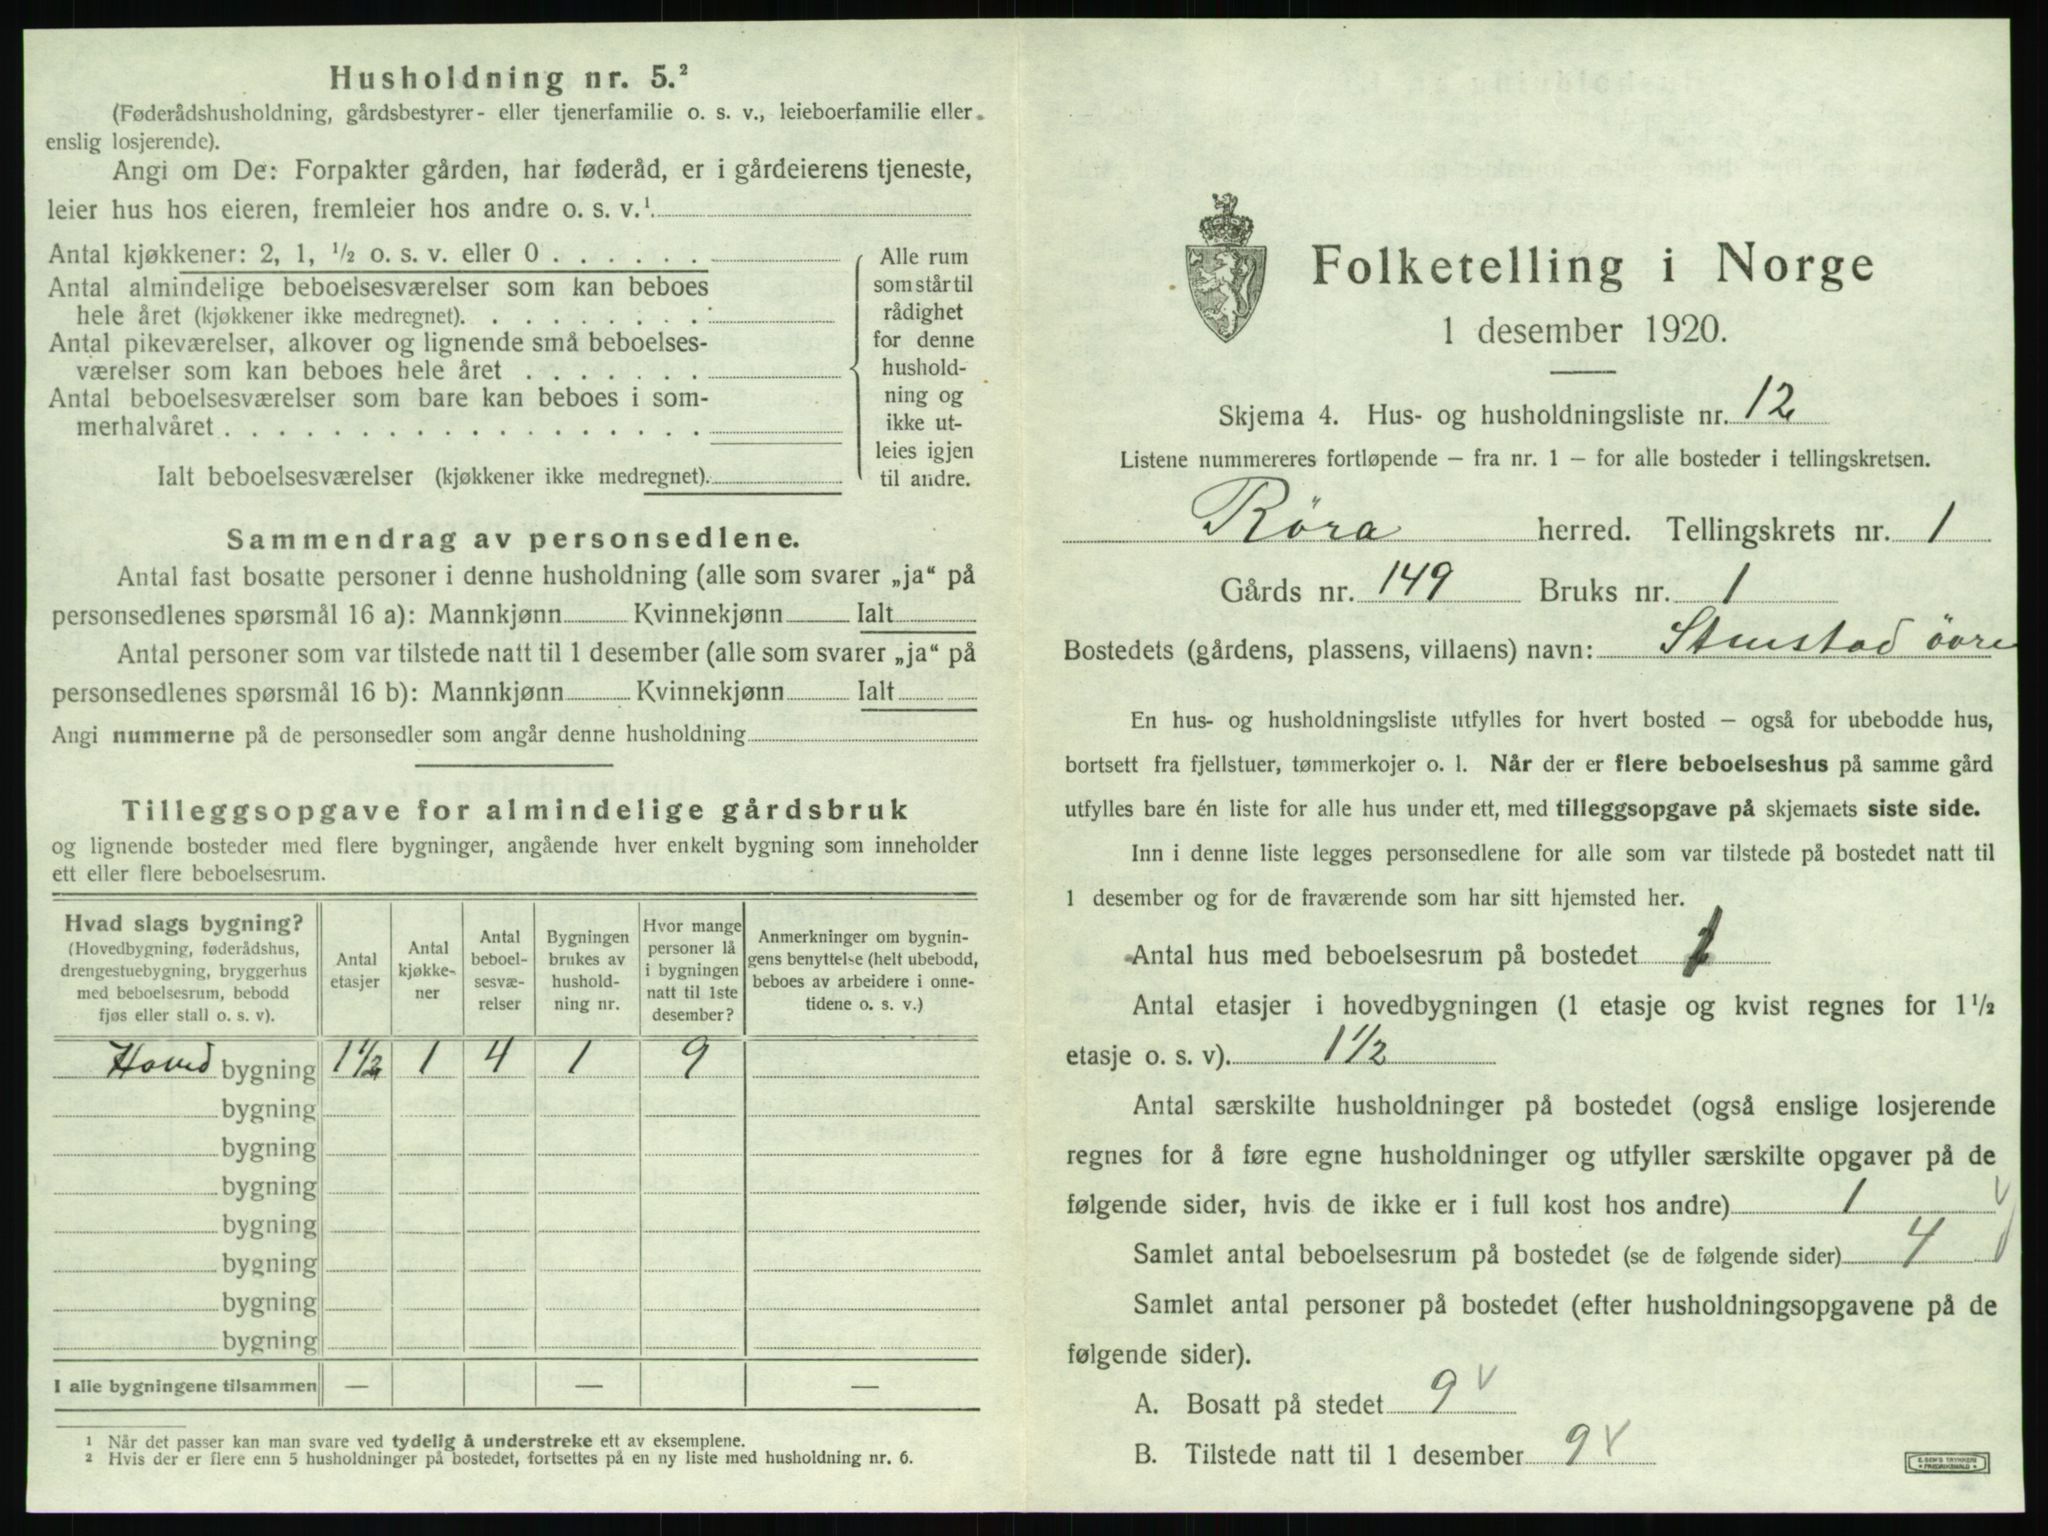 Husholdning nr. 5.²
(Føderådshusholdning, gårdsbestyrer- eller tjenerfamilie o. s. v., leieboerfamilie eller
enslig losjerende).
Angi om De: Forpakter gården, har føderåd, er i gårdeierens tjeneste,
leier hus hos eieren, fremleier hos andre o. s. v.¹
Antal kjøkkener: 2, 1, ½ o. s. v. eller 0 . . . . . .
Antal almindelige beboelsesværelser som kan beboes
hele året (kjøkkener ikke medregnet). . . . . . . . .
Antal pikeværelser, alkover og lignende små beboelses-
værelser som kan beboes hele året . . . . . . .
Antal beboelsesværelser som bare kan beboes i som-
merhalvåret . . . . . . . . . . . . . . . . . .
Ialt beboelsesværelser (kjøkkener ikke medregnet).
Alle rum
som står til
rådighet
for denne
hushold-
ning og
ikke ut-
leies igjen
til andre.
Sammendrag av personsedlene.
Antal fast bosatte personer i denne husholdning (alle som svarer „ja“ på
personsedlenes spørsmål 16 a): Mannkjønn Kvinnekjønn Ialt
Antal personer som var tilstede natt til 1 desember (alle som svarer „ja“ på
personsedlenes spørsmål 16 b): Mannkjønn Kvinnekjønn Ialt
Angi nummerne på de personsedler som angår denne husholdning
Tilleggsopgave for almindelige gårdsbruk
og lignende bosteder med flere bygninger, angående hver enkelt bygning som inneholder
ett eller flere beboelsesrum.
Hvad slags bygning?
(Hovedbygning, føderådshus,
drengestuebygning, bryggerhus
med beboelsesrum, bebodd
fjøs eller stall o. s. v).
Antal
etasjer
Antal
kjøkke-
ner
Antal
beboel-
sesvæ-
relser
Bygningen
brukes av
hushold-
ning nr.
Hvor mange
personer lå
i bygningen
natt til 1ste
desember?
Anmerkninger om bygnin-
gens benyttelse (helt ubebodd,
beboes av arbeidere i onne-
tidene o. s. v.)
Hoved bygning 1½ 1 4 1 9
bygning
bygning
bygning
bygning
bygning
bygning
bygning
I alle bygningene tilsammen — — —
¹ Når det passer kan man svare ved tydelig å understreke ett av eksemplene.
² Hvis der er flere enn 5 husholdninger på bostedet, fortsettes på en ny liste med husholdning nr. 6.
Folketelling i Norge
1 desember 1920.
Skjema 4. Hus- og husholdningsliste nr. 12
Listene nummereres fortløpende — fra nr. 1 — for alle bosteder i tellingskretsen.
Röra herred. Tellingskrets nr. 1
Gårds nr. 149 Bruks nr. 1
Bostedets (gårdens, plassens, villaens) navn: övre
En hus- og husholdningsliste utfylles for hvert bosted — også for ubebodde hus,
bortsett fra fjellstuer, tømmerkojer o. l. Når der er flere beboelseshus på samme gård
utfylles bare én liste for alle hus under ett, med tilleggsopgave på skjemaets siste side.
Inn i denne liste legges personsedlene for alle som var tilstede på bostedet natt til
1 desember og for de fraværende som har sitt hjemsted her.
Antal hus med beboelsesrum på bostedet
Antal etasjer i hovedbygningen (1 etasje og kvist regnes for 1½
etasje o. s. v). 1½
Antal særskilte husholdninger på bostedet (også enslige losjerende
regnes for å føre egne husholdninger og utfyller særskilte opgaver på de
følgende sider, hvis de ikke er i full kost hos andre) 1
Samlet antal beboelsesrum på bostedet (se de følgende sider) 4
Samlet antal personer på bostedet (efter husholdningsopgavene på de
følgende sider).
A. Bosatt på stedet 9 v
B. Tilstede natt til 1 desember 9 v